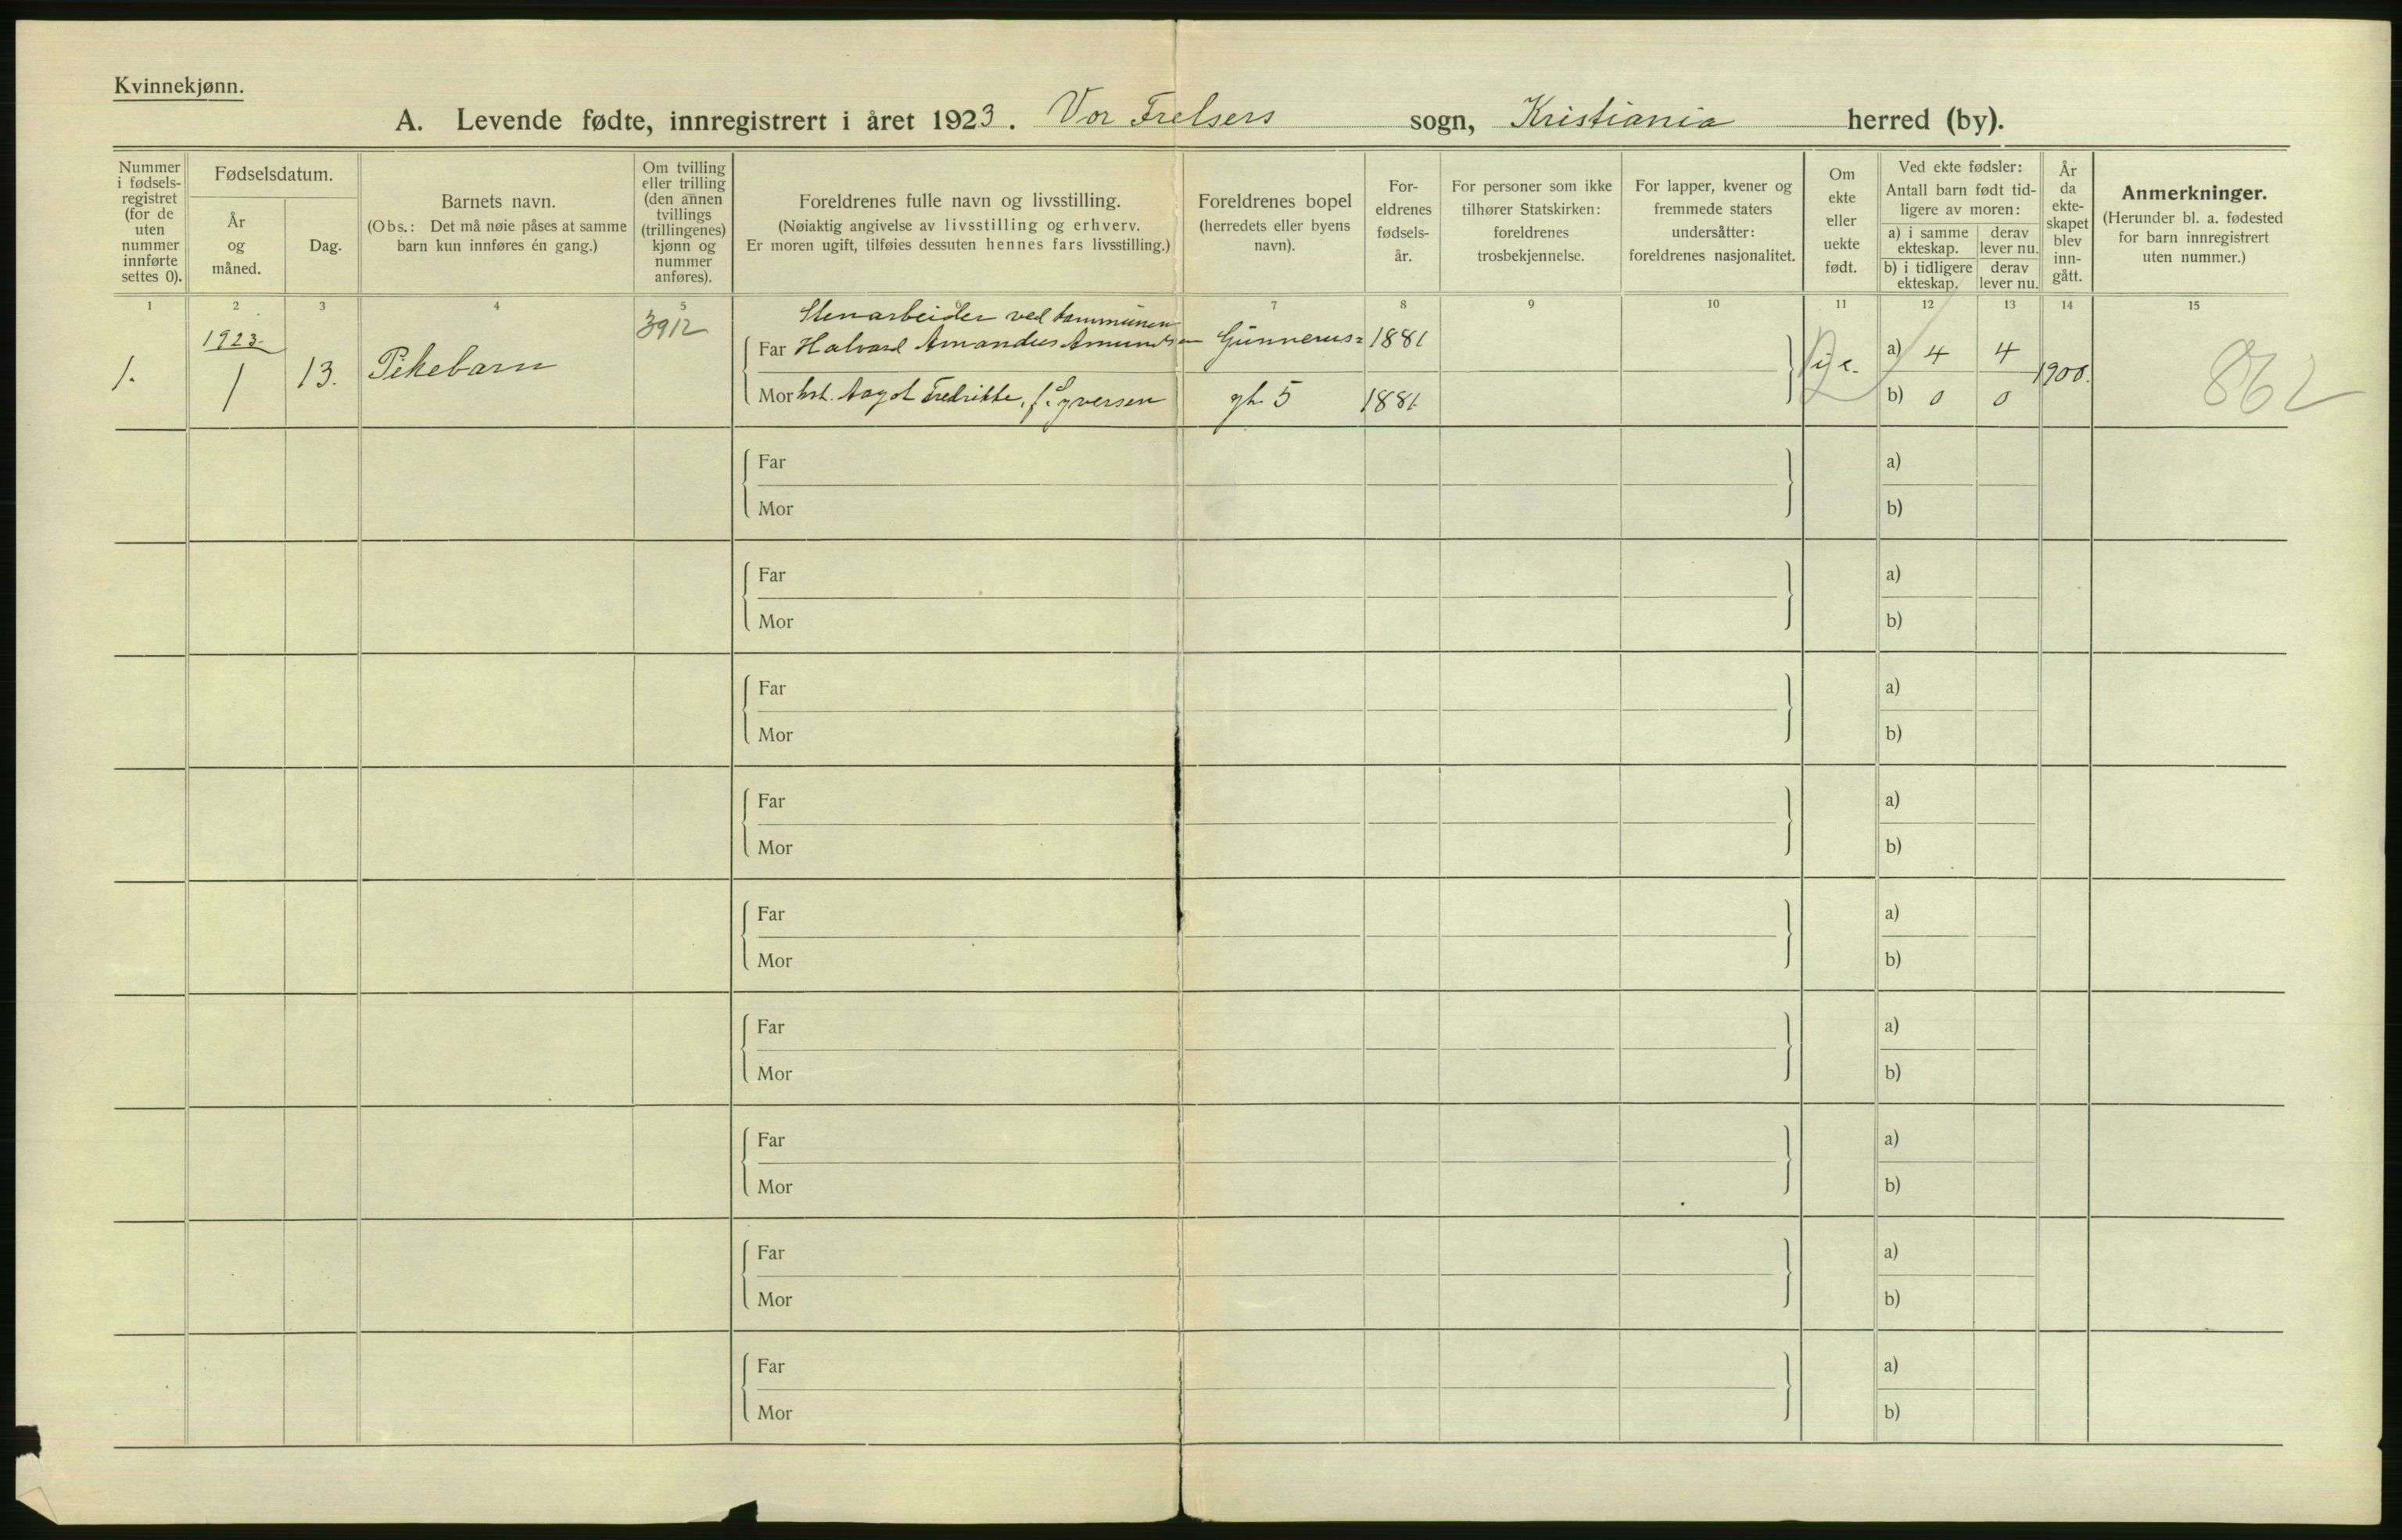 Kvinnekjønn.
A. Levende fødte, innregistrert i året 1923. Vor Frelsers sogn, Kristiania herred (by).
Nummer i fødsels-registret (for de uten nummer innførte settes 0).
Fødselsdatum.
År og måned.
Dag.
Barnets navn.
(Obs.: Det må nøie påses at samme barn kun innføres én gang.)
Om tvilling eller trilling (den annen tvillings (trillingenes) kjønn og nummer anføres).
Foreldrenes fulle navn og livsstilling.
(Nøiaktig angivelse av livsstilling og erhverv.
Er moren ugift, tilføies dessuten hennes fars livsstilling.)
Foreldrenes bopel
(herredets eller byens navn).
For-eldrenes fødsels-år.
For personer som ikke tilhører Statskirken: foreldrenes trosbekjennelse.
For lapper, kvener og fremmede staters undersåtter: foreldrenes nasjonalitet.
Om ekte eller uekte født.
Ved ekte fødsler:
Antall barn født tid-ligere av moren:
a) i samme ekteskap.
derav lever nu.
b) i tidligere ekteskap.
derav lever nu.
År da ekte-skapet blev inn-gått.
Anmerkninger.
(Herunder bl. a. fødested for barn innregistrert uten nummer.)
1 2 3 4 5 6 7 8 9 10 11 12 13 14 15
3912
Stenarbeider ved kommunen
1923
Far Halvard Amandus Amundsen Gunnerus= 1881
a) 4 4
1. 1 13. Pikebarn
1900.
862
Mor hst. Aagot Fredrikke, f. Syversen gt. 5 1881
b) 0 0
Far a)
Mor b)
Far a)
Mor b)
Far a)
Mor b)
Far a)
Mor b)
Far a)
Mor b)
Far a)
Mor b)
Far a)
Mor b)
Far a)
Mor b)
Far a)
Mor b)